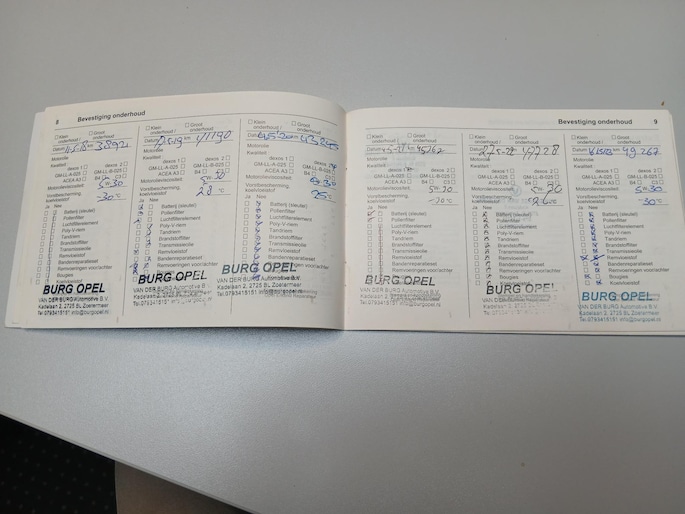 8 Bevestiging onderhoud
Klein onderhoud / Groot onderhoud
Datum km 38921
Motorolie
Kwaliteit dexos 1 dexos 2
GM-LL-A-025 GM-LL-B-025
ACEA A3 B4 C3
Motorolieviscositeit 5w30
Vorstbescherming,
koelvloeistof -30 °C
Ja Nee
Batterij (sleutel)
Pollenfilter
Luchtfilterelement
Poly-V-riem
Tandriem
Brandstoffilter
Transmissieolie
Remvloeistof
Bandenreparatieset
Remvoeringen voor/achter
Bougies
Koelvloeistof
BURG OPEL
VAN DER BURG Automotive B.V.
Kadelaan 2, 2725 BL Zoetermeer
Tel:0793415151 info@burgopel.nl
Klein onderhoud / Groot onderhoud
Datum km 41190
Motorolie
Kwaliteit dexos 1 dexos 2
GM-LL-A-025 GM-LL-B-025
ACEA A3 B4 C3
Motorolieviscositeit
Vorstbescherming,
koelvloeistof °C
Ja Nee
Batterij (sleutel)
Pollenfilter
Luchtfilterelement
Poly-V-riem
Tandriem
Brandstoffilter
Transmissieolie
Remvloeistof
Bandenreparatieset
Remvoeringen voor/achter
BURG OPEL
VAN DER BURG Automotive B.V.
Kadelaan 2, 2725 BL Zoetermeer
Tel:0793415151 info@burgopel.nl
Klein onderhoud / Groot onderhoud
Datum km
Motorolie
Kwaliteit dexos 1 dexos 2
GM-LL-A-025 GM-LL-B-025
ACEA A3 B4 C3
Motorolieviscositeit
Vorstbescherming,
koelvloeistof 25 °C
Ja Nee
Batterij (sleutel)
Pollenfilter
Luchtfilterelement
Poly-V-riem
Tandriem
Brandstoffilter
Transmissieolie
Remvloeistof
BURG OPEL
Bevestiging onderhoud 9
Klein onderhoud / Groot onderhoud
Datum km 45262
Motorolie
Kwaliteit dexos 1 dexos 2
GM-LL-A-025 GM-LL-B-025
ACEA A3 B4 C3
Motorolieviscositeit
Vorstbescherming,
koelvloeistof °C
Ja Nee
Batterij (sleutel)
Pollenfilter
Luchtfilterelement
Poly-V-riem
Tandriem
Brandstoffilter
Transmissieolie
Remvloeistof
Bandenreparatieset
Remvoeringen voor/achter
BURG OPEL
VAN DER BURG Automotive B.V.
Kadelaan 2, 2725 BL Zoetermeer
Tel:0793415151 info@burgopel.nl
Klein onderhoud / Groot onderhoud
Datum km
Motorolie
Kwaliteit dexos 1 dexos 2
GM-LL-A-025 GM-LL-B-025
ACEA A3 B4 C3
Motorolieviscositeit
Vorstbescherming,
koelvloeistof °C
Ja Nee
Batterij (sleutel)
Pollenfilter
Luchtfilterelement
Poly-V-riem
Tandriem
Brandstoffilter
Transmissieolie
Remvloeistof
Bandenreparatieset
Remvoeringen voor/achter
BURG OPEL
VAN DER BURG Automotive B.V.
Kadelaan 2, 2725 BL Zoetermeer
Tel:0793415151 info@burgopel.nl
Klein onderhoud / Groot onderhoud
Datum km 49267
Motorolie
Kwaliteit dexos 1 dexos 2
GM-LL-A-025 GM-LL-B-025
ACEA A3 B4 C3
Motorolieviscositeit 5w30
Vorstbescherming,
koelvloeistof -30 °C
Ja Nee
Batterij (sleutel)
Pollenfilter
Luchtfilterelement
Poly-V-riem
Tandriem
Brandstoffilter
Transmissieolie
Remvloeistof
Bandenreparatieset
Remvoeringen voor/achter
Bougies
Koelvloeistof
BURG OPEL
VAN DER BURG Automotive B.V.
Kadelaan 2, 2725 BL Zoetermeer
Tel:0793415151 info@burgopel.nl